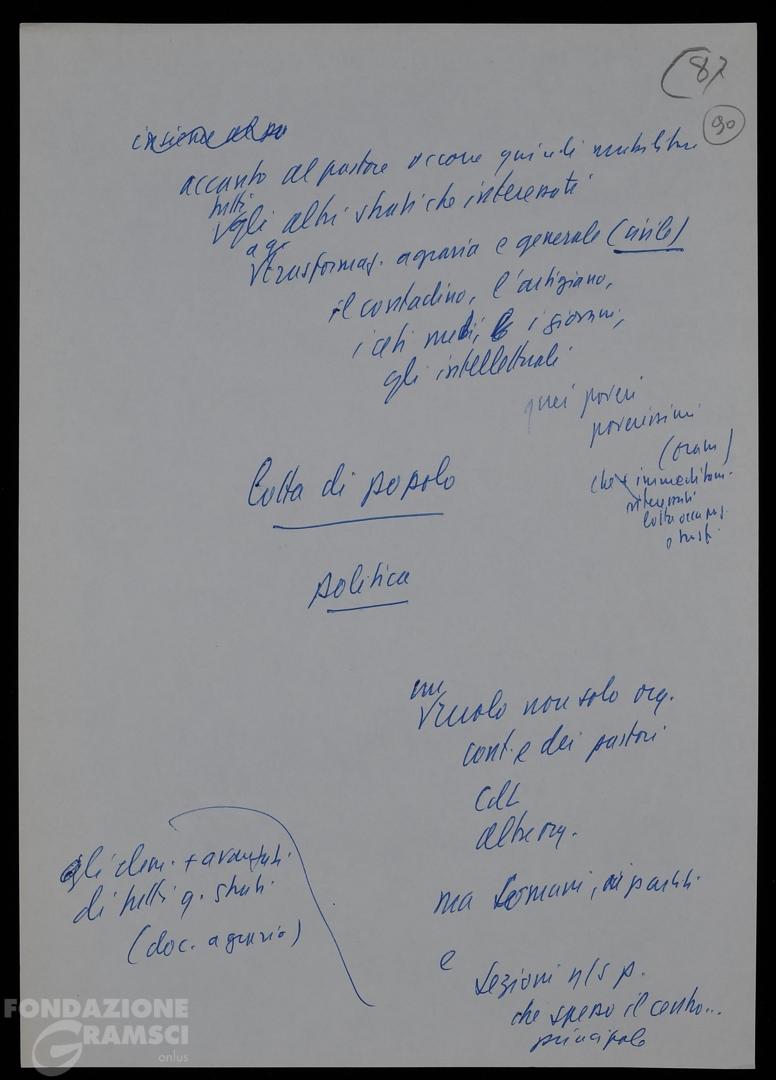 (87
90
insieme al pa
accanto al pastore occorre quindi mobilitare
tutti
gli altri strati che interessati
a q.
trasformaz. agraria e generale (civile)
il contadino, l'artigiano,
i ceti medi, i giovani,
gli intellettuali
quei poveri
poverissimi
che + immediatam.
interessati
lotta
Lotta di popolo
politica
un
ruolo non solo org.
cont. e dei pastori
CdL
altre org.
gli elem. + avanzati
di tutti q. strati
(doc. agrario)
ma Comuni, i partiti
e
sezioni n/s p.
che spesso il centro...
principale
FONDAZIONE
GRAMSCI
onlus